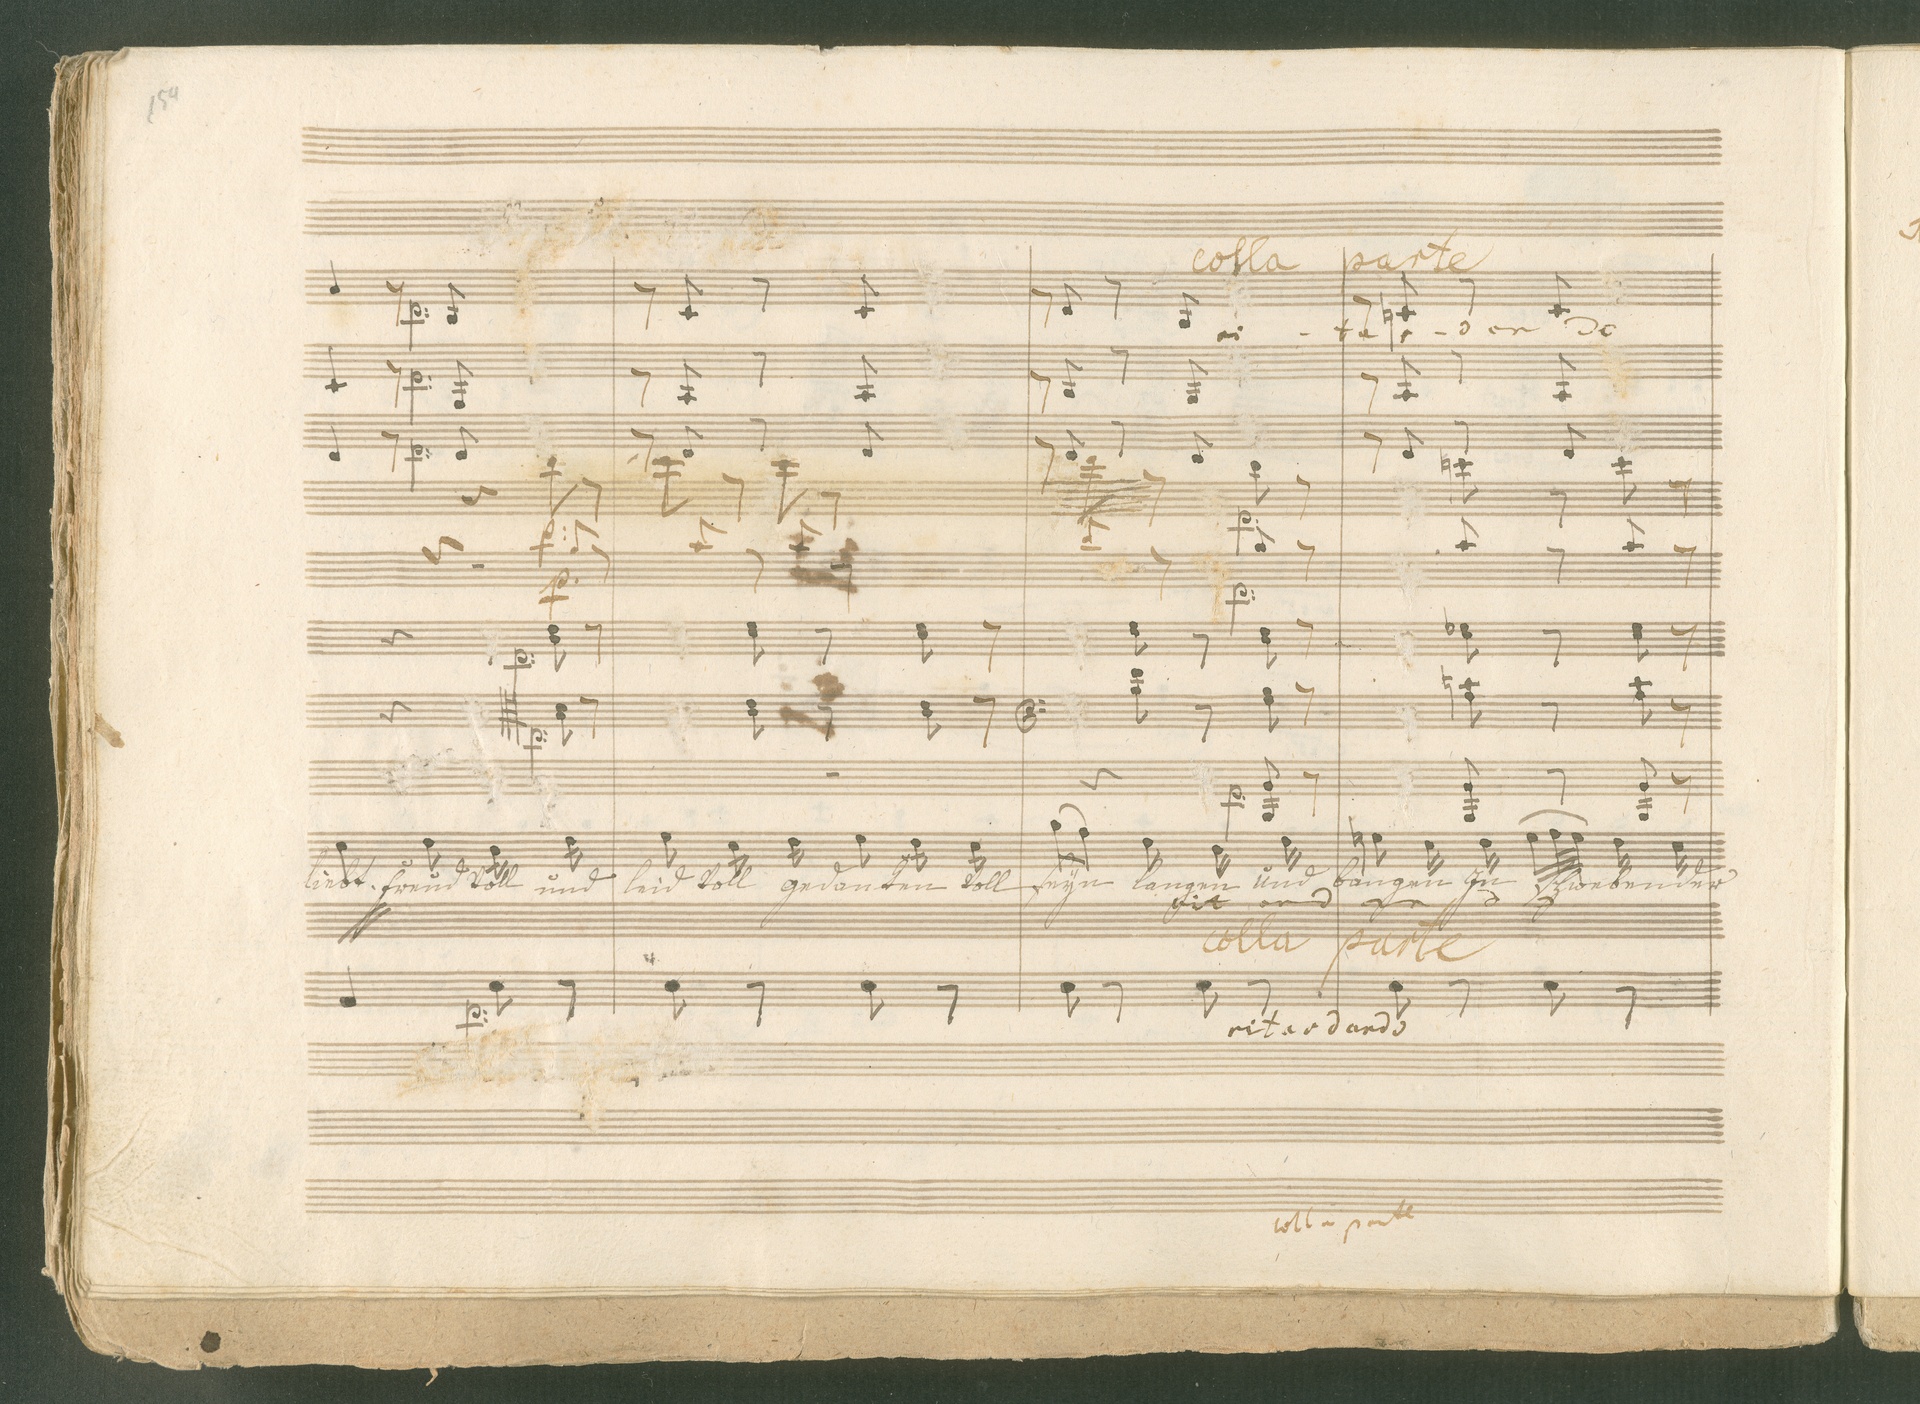 154
colla parte
ri - ta r - d an Do
liebt. freud voll und leid voll gedanken voll seyn langen und bangen in schwebender
colla parte
ritardando
colla parte